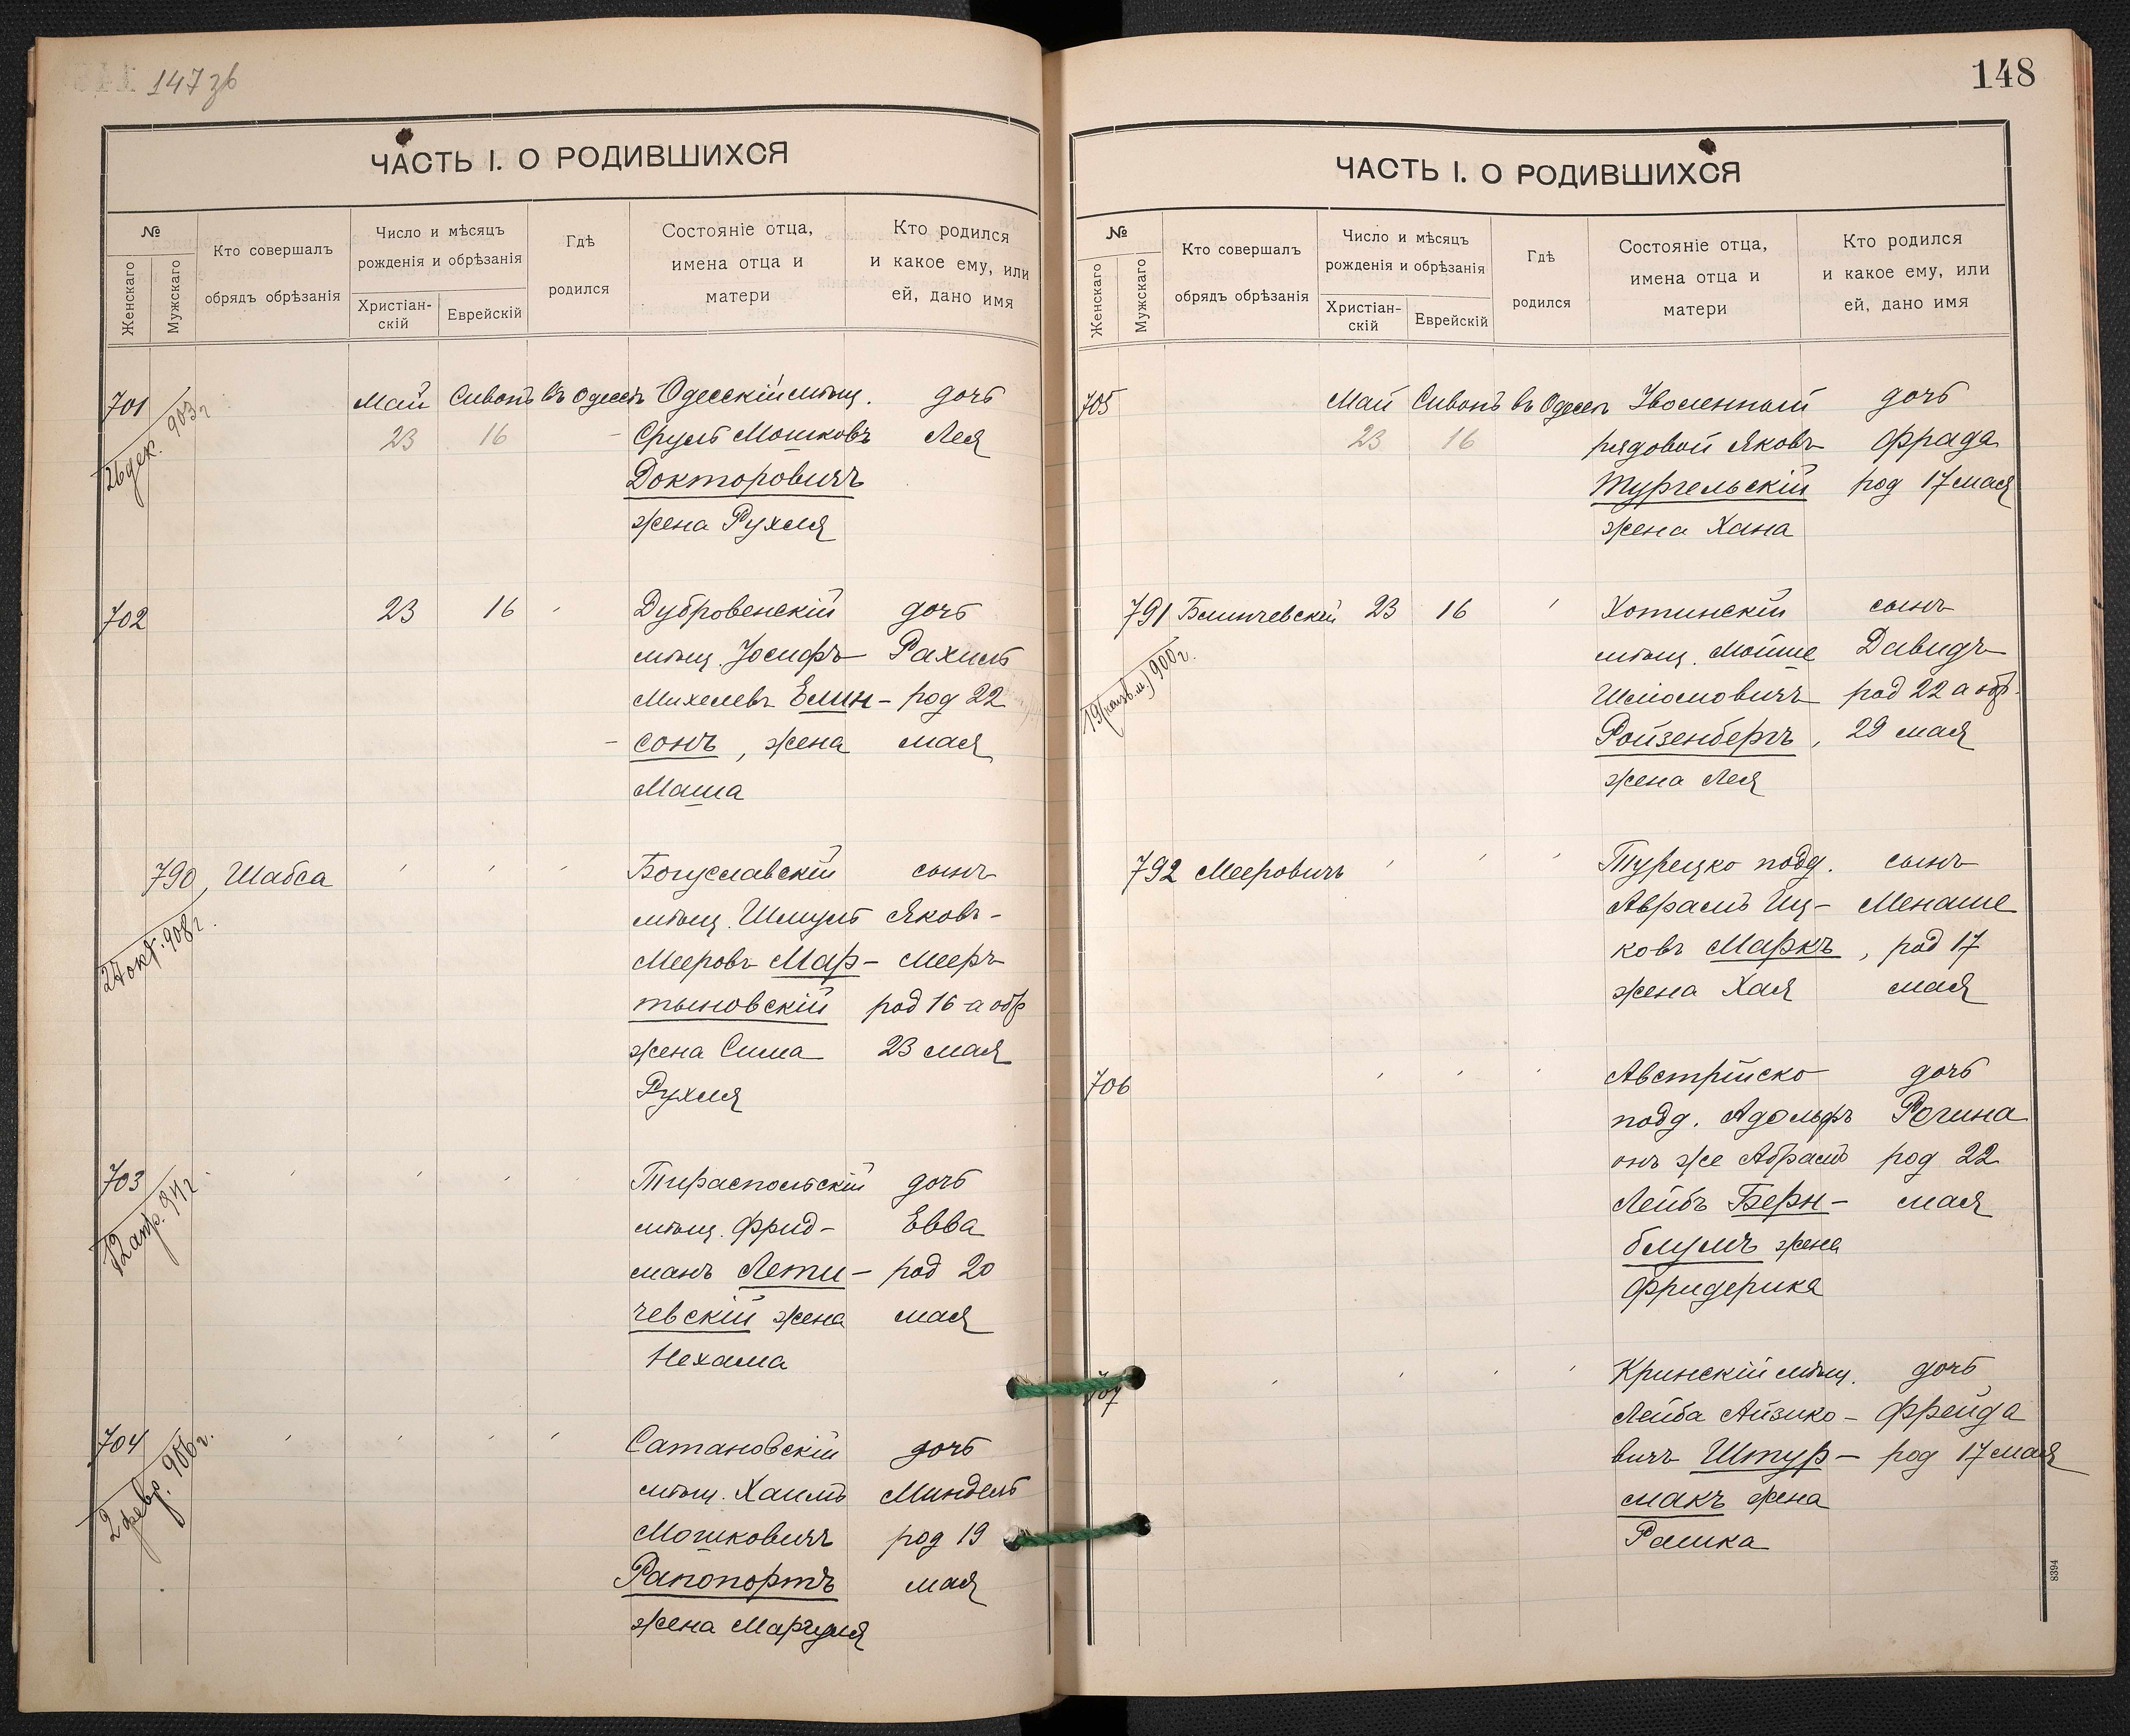 147 зв
ЧАСТЬ I. О РОДИВШИХСЯ
№
Женскаго
Мужскаго
Кто совершалъ
обрядъ обрѣзанія
Число и мѣсяцъ
рожденія и обрѣзанія
Христіан-
скій
Еврейскій
Гдѣ
родился
Состояніе отца,
имена отца и
матери
Кто родился
и какое ему, или
ей, дано имя
701 Май Сивонъ въ Одессѣ Одесскій мѣщ. дочь
26 дек. 903 г
23 16 Сруль Мошковъ Лея
Докторовичъ
жена Рухля
702 23 16 Дубровенскій дочь
мѣщ. Іосифъ Рахиль
Михелевъ Елин- род 22
сонъ, жена мая
Маша
790 Шабса Богуславскій сынъ
27 окт. 908 г.
мѣщ. Шмуль Яковъ-
Мееровъ Мар- Мееръ
тыновскій род 16 а обр
жена Сима 23 мая
Рухля
703 Тираспольскій дочь
12 апр.
мѣщ. Фрид- Евва
манъ Лети- род 20
чевскій жена мая
Нехама
704 Сатановскій дочь
2 февр. 906 г.
мѣщ. Хаимъ Миндель
Мошковичъ род 19
Рапопортъ мая
жена Маргуля
148
ЧАСТЬ I. О РОДИВШИХСЯ
№
Женскаго
Мужскаго
Кто совершалъ
обрядъ обрѣзанія
Число и мѣсяцъ
рожденія и обрѣзанія
Христіан-
скій
Еврейскій
Гдѣ
родился
Состояніе отца,
имена отца и
матери
Кто родился
и какое ему, или
ей, дано имя
705 Май Сивонъ въ Одессѣ Уволенный дочь
23 16 рядовой Яковъ Фрада
Тургельскій род 17 мая
жена Хана
791 23 16 Хотинскій сынъ
900 г.
мѣщ. Мойше Давидъ
Шліомовичъ род 22 а обр.
Ройзенбергъ, 29 мая
жена Лея
792 Мееровичъ Турецко подд. сынъ
Аврамъ Иц- Менаше
ковъ Маркъ, род 17
жена Хая мая
706 Австрійско дочь
подд. Адольфъ Регина
онъ же Абрамъ род 22
Лейбъ Берн- мая
блумъ жена
Фридерика
707 Кринскій мѣщ. дочь
Лейба Айзико- Фрейда
вичъ Штур- род 17 мая
макъ жена
Рашка
8394